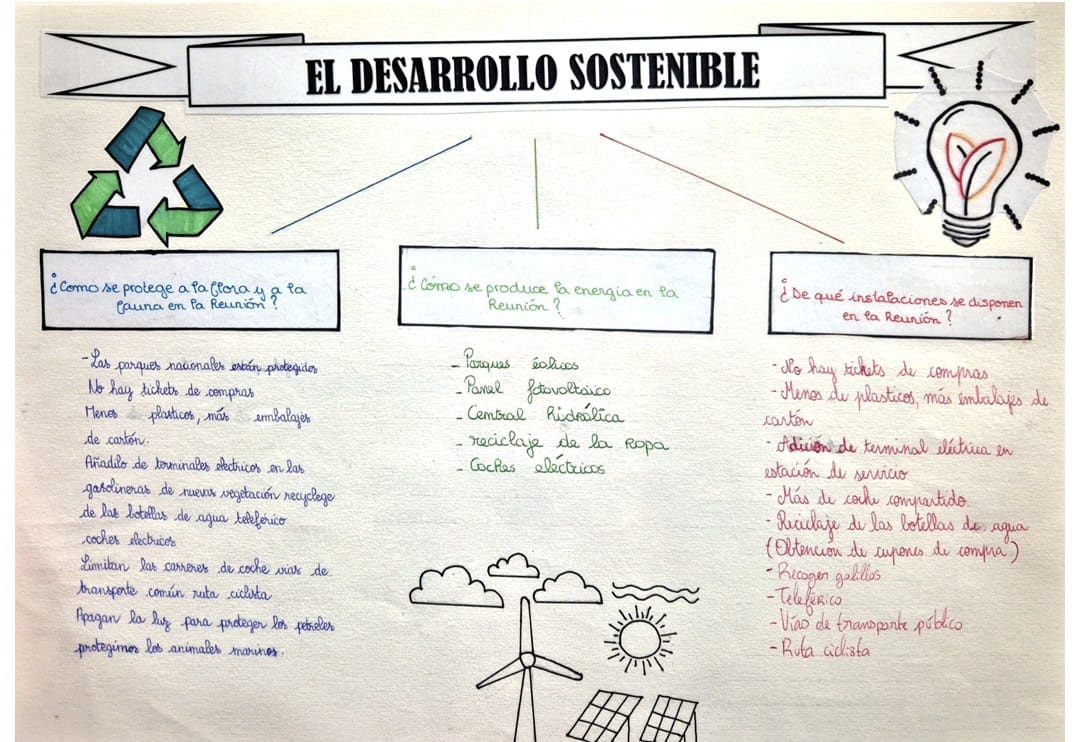 EL DESARROLLO SOSTENIBLE
¿Como se protege a la flora y a la
fauna en la Reunión?
- Las parques nacionales están protegidos
No hay tichets de compras
Menos plasticos, más embalajes
de cartón.
Añadilo de terminales electricos en las
gasolineras de nuevas vegetación recyclege
de las botellas de agua teleférico
coches electricos
Limitan las carreres de coche vias de
transporte común ruta ciclista
Apagan la luz para proteger los petreles
protegimos los animales marinos.
¿Cómo se produce la energia en la
Reunión?
- Parques éolicos
- Panel fotovoltáico
- Central hidrólica
- reciclaje de la ropa
- Coches eléctricos
¿De qué instalaciones se disponen
en la Reunión?
- No hay tickets de compras
- Menos de plasticos, más embalajes de
cartón
- Adición de terminal eléctrica en
estación de servicio
- Más de coche compartido
- Reciclaje de las botellas de agua
(Obtención de cupones de compra)
- Recoger
- Teleférico
- Vías de transporte público
- Ruta ciclista